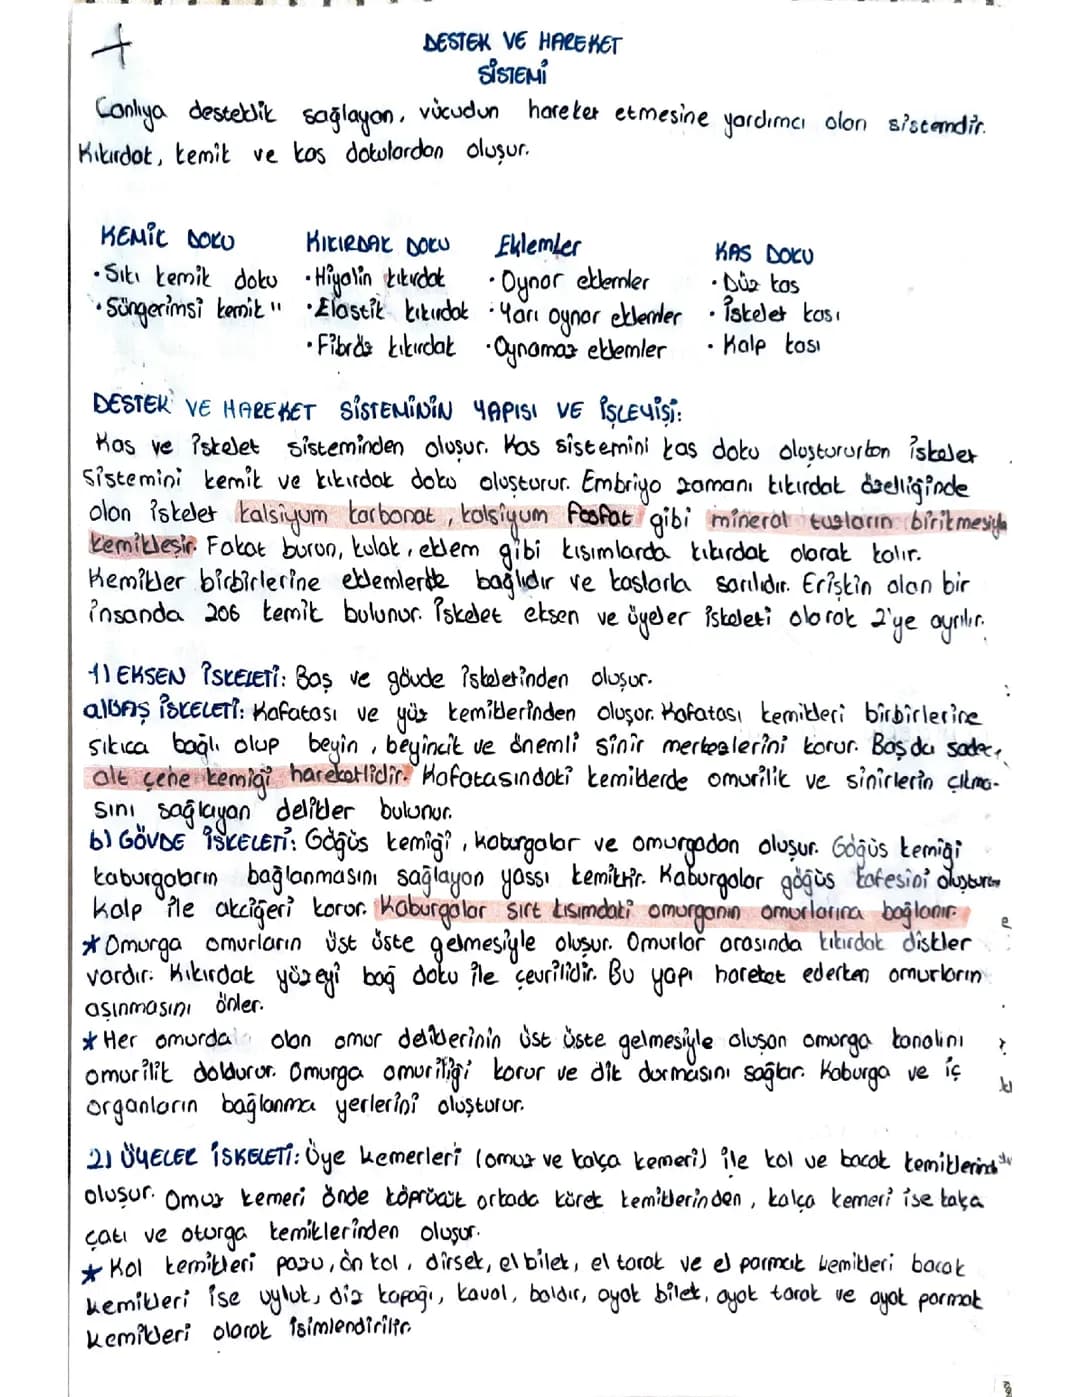 DESTEK VE HAREKET
SİSTEMİ
Canlıya desteklik sağlayan, vücudun hareket etmesine yardımcı olan sistemdir.
Kıkırdak, kemik ve kas dokulardan oluşur.
KEMİK DOKU
• Sıkı kemik doku
• Süngerimsi kemik "
KIKIRDAK DOKU
• Hiyalin kıkırdak
• Elastik kıkırdak
• Fibröz kıkırdak
Eklemler
• Oynar eklemler
• Yarı oynar eklemler
• Oynamaz eklemler
KAS DOKU
• Düz kas
• İskelet kası
• Kalp kası
DESTEK VE HAREKET SİSTEMİNİN YAPISI VE İŞLEYİŞİ:
Kas ve iskelet sisteminden oluşur. Kas sistemini kas doku oluştururken iskelet
sistemini kemik ve kıkırdak doku oluşturur. Embriyo zamanı kıkırdak özelliğinde
olan iskelet kalsiyum karbonat, kalsiyum fosfat gibi mineral tuzların birikmesiyle
kemikleşir. Fakat burun, kulak, eklem gibi kısımlarda kıkırdak olarak kalır.
Kemikler birbirlerine eklemlerle bağlıdır ve kaslarla sarılıdır. Erişkin olan bir
insanda 206 kemik bulunur. İskelet eksen ve üyeler iskeleti olarak 2'ye ayrılır.
1) EKSEN İSKELETİ: Baş ve gövde iskeletinden oluşur.
a) BAŞ İSKELETİ: Kafatası ve yüz kemiklerinden oluşor. Kafatası kemikleri birbirlerine
sıkıca bağlı olup beyin, beyincik ve önemli sinir merkezlerini korur. Başda sadece
alt çene kemiği hareketlidir. Kafatasındaki kemiklerde omurilik ve sinirlerin çıkma-
sını sağlayan delikler bulunur.
b) GÖVDE İSKELETİ: Göğüs kemiği, kaburgalar ve omurgadan oluşur. Göğüs kemiği
kaburgaların bağlanmasını sağlayan yassı kemiktir. Kaburgalar göğüs kafesini oluşturur
kalp ile akciğeri korur. Kaburgalar sırt kısımdaki omurganın omurlarına bağlanır.
* Omurga omurların üst üste gelmesiyle oluşur. Omurlar arasında kıkırdak diskler
vardır. Kıkırdak yüzeyi bağ doku ile çevrilidir. Bu yapı hareket ederken omurların
aşınmasını önler.
* Her omurda olan omur deliklerinin üst üste gelmesiyle oluşan omurga kanalını
omurilik doldurur. Omurga omuriliği korur ve dik durmasını sağlar. Kaburga ve iç
organların bağlanma yerlerini oluşturur.
2) ÜYELER İSKELETİ: Üye kemerleri (omuz ve kalça kemeri) ile kol ve bacak kemiklerinden
oluşur. Omuz kemeri önde köprücük arkada kürek kemiklerinden, kalça kemeri ise kalça
çatı ve oturga kemiklerinden oluşur.
* Kol kemikleri pazu, ön kol, dirsek, el bilek, el tarak ve el parmak kemikleri bacak
kemikleri ise uyluk, diz kapağı, kaval, baldır, ayak bilek, ayak tarak ve ayak parmak
kemikleri olarak isimlendirilir.